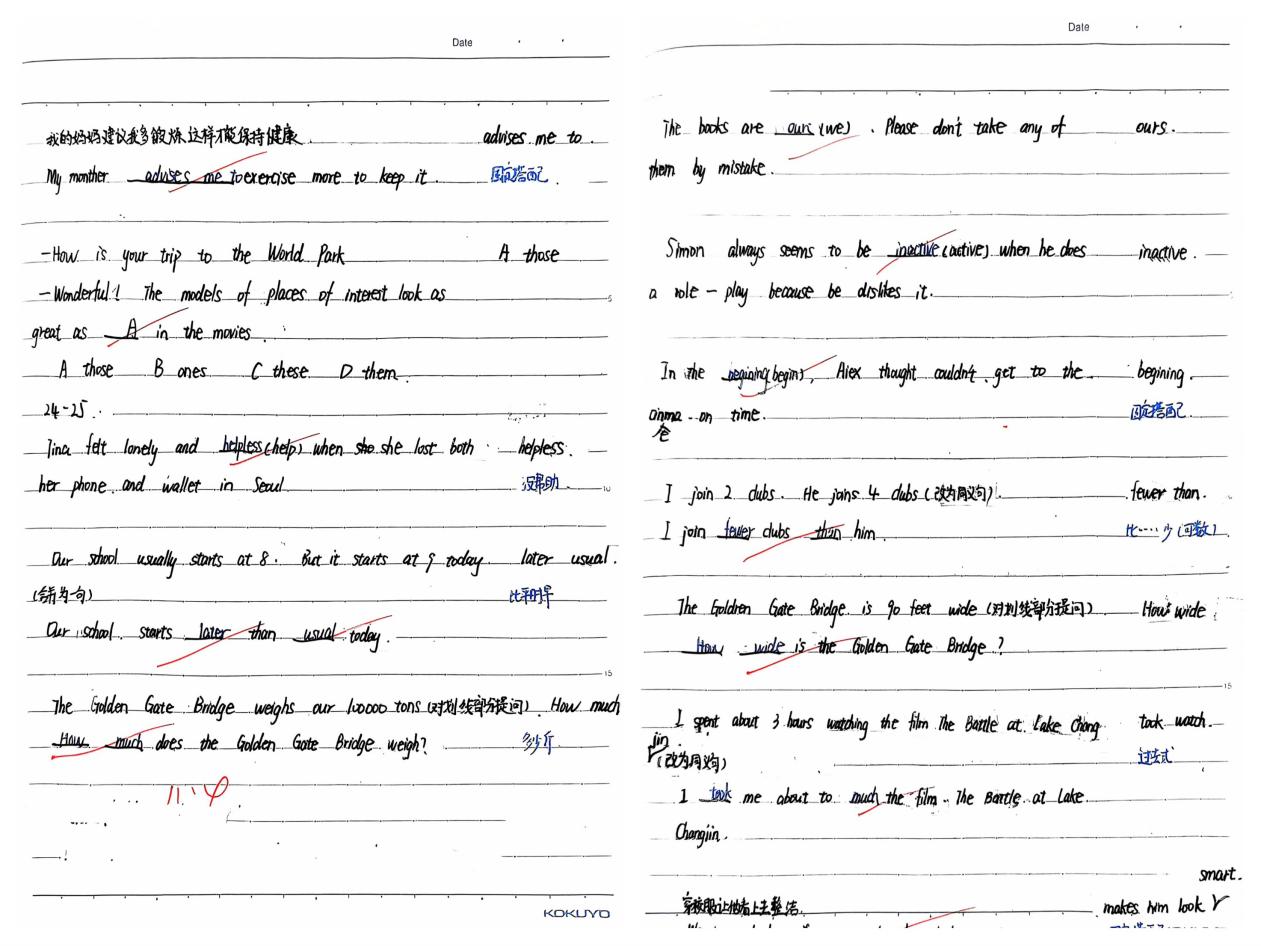 Date
我的妈妈建议我多锻炼,这样才能保持健康. advises me to.
My monther advises me to exercise more to keep it. 固定搭配.
-How is your trip to the World Park A those
-Wonderful! The models of places of interest look as
great as A in the movies.
A those B ones C these D them.
24-25.
Tina felt lonely and helpless (help) when she she lost both helpless.
her phone and wallet in Seoul 没帮助.
Our school usually starts at 8. But it starts at 9 today. later usual.
(合并为一句) 比平时早
Our school starts later than usual today.
The Golden Gate Bridge weighs our 100000 tons (对划线部分提问). How much
How much does the Golden Gate Bridge weigh? 多少斤
11.14
KOKUYO
Date
The books are ours (we). Please don't take any of ours.
them by mistake.
Simon always seems to be inactive (active) when he does inactive.
a role-play because be dislikes it.
In the begining (begin), Alex thought couldn't get to the begining.
on time. 固定搭配.
I join 2 clubs. He joins 4 clubs (改为同义句). fewer than.
I join fewer clubs than him. 比……少 (可数)
The Goldren Gate Bridge is 90 feet wide (对划线部分提问) How wide
How wide is the Golden Gate Bridge?
I spent about 3 hours watching the film The Battle at Lake Chang took watch.
jin.
(改为同义句) 过去式
I took me about to much the film. The Battle at Lake
Changjin.
smart.
穿校服让他看上去整洁. makes him look